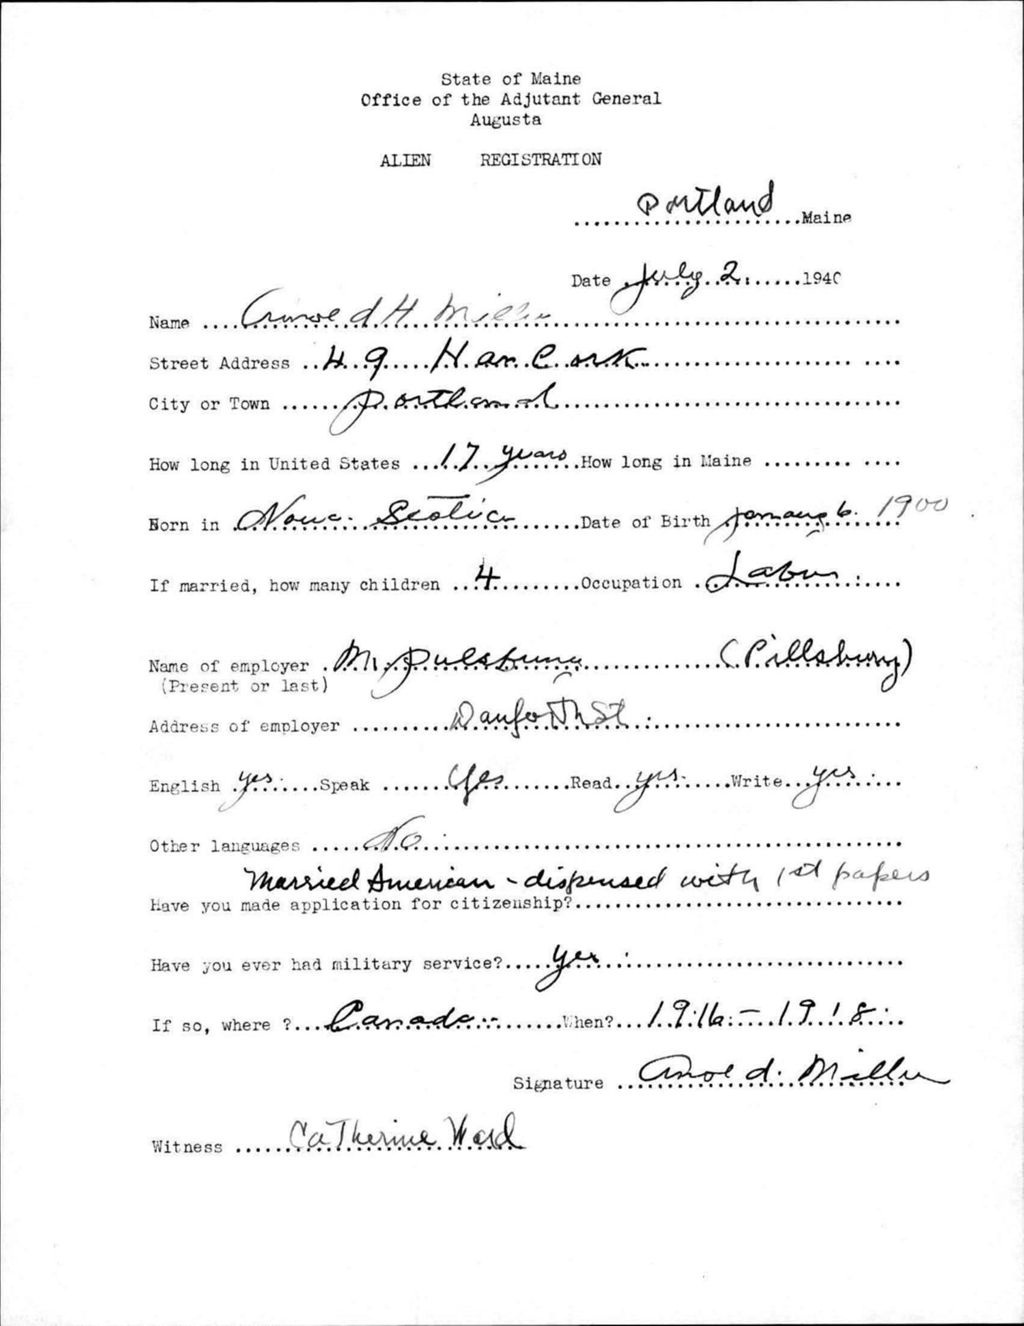 State of Maine
Office of the Adjutant General
Augusta
ALIEN REGISTRATION
Portland Maine
Date July 2. 1940
Name Arnold H Miller
Street Address 49 Hancock
City or Town Portland
How long in United States 17 years How long in Maine
Born in Nova Scotia Date of Birth January 6. 1900
If married, how many children 4 Occupation Labor
Name of employer (Pillsbury)
(Present or last)
Address of employer Danforth St.
English yes. Speak Yes Read yes. Write yes.
Other languages No.
Married American - dispensed with 1st papers
Have you made application for citizenship?
Have you ever had military service? yes.
If so, where ? Canada When? 1916 - 1918
Signature Arnold. Miller
Witness Catherine Ward